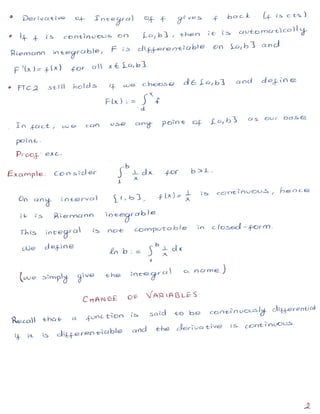 • Derivative of Integral of f gives f back (f is cts)
• If f is continuous on [a,b], then it is automatically
Riemann integrable, F is differentiable on [a,b] and
F'(x) = f(x) for all x ∈ [a,b]
• FTC2 still holds if we choose d ∈ [a,b] and define
F(x) := ∫_d^x f
In fact, we can use any point of [a,b] as our base
point.
Proof exc.
Example. Consider ∫_1^b 1/x dx for b>1.
On any interval [1,b], f(x) = 1/x is continuous, hence
it is Riemann integrable
This integral is not computable in closed-form.
We define
ln b := ∫_1^b 1/x dx
(we simply give the integral a name)
CHANGE OF VARIABLES
Recall that a function is said to be continuously differential
if it is differentiable and the derivative is continuous
2